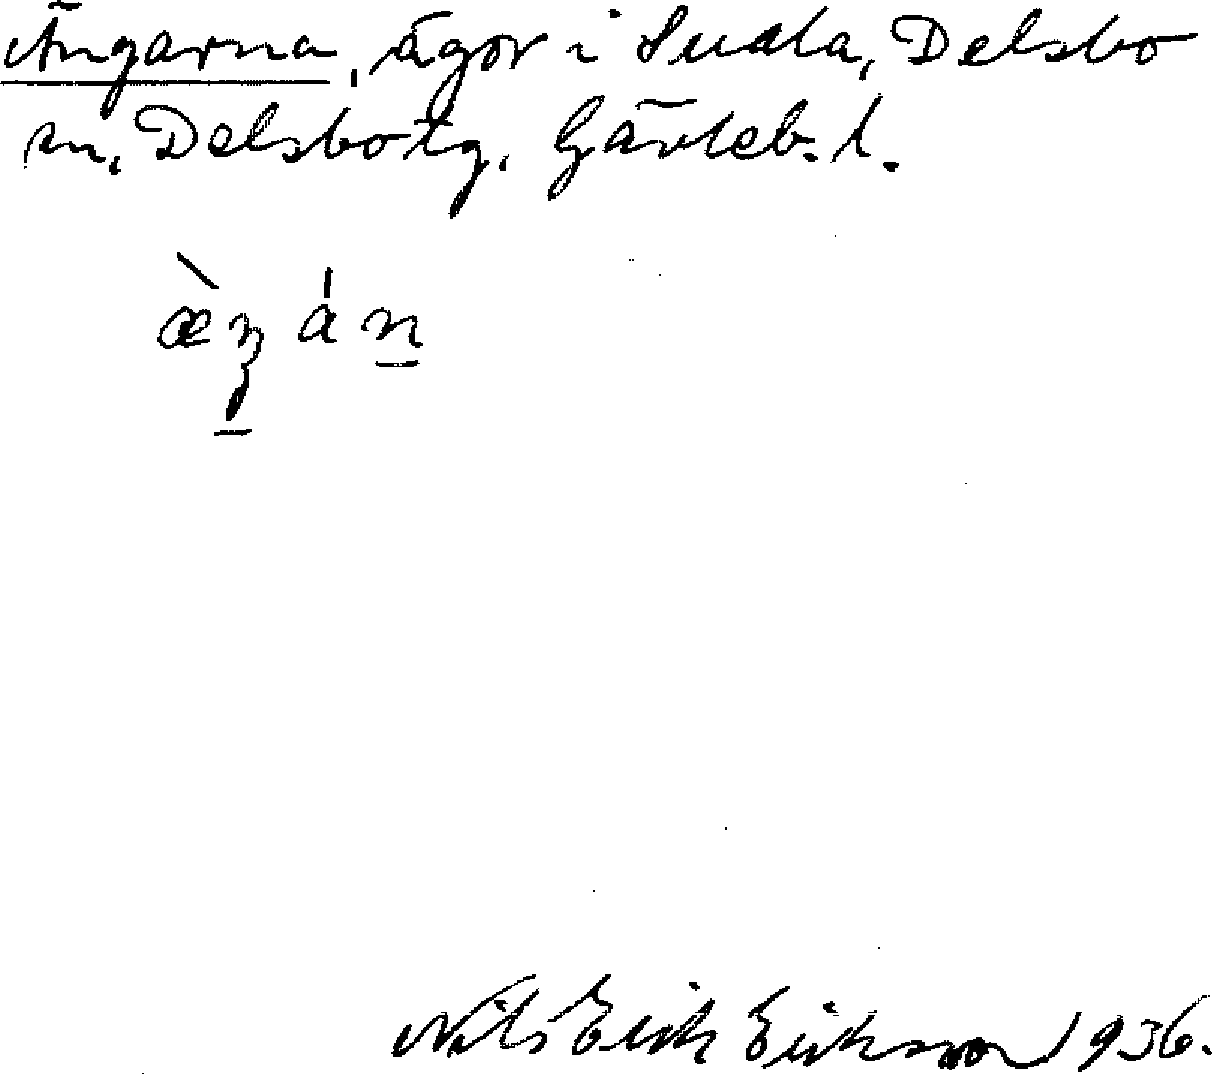 Ängarna, ägor i Delsbo
sn, Delsbo tg, Gävleb. l.
Nils Erik Eriksson 1936.